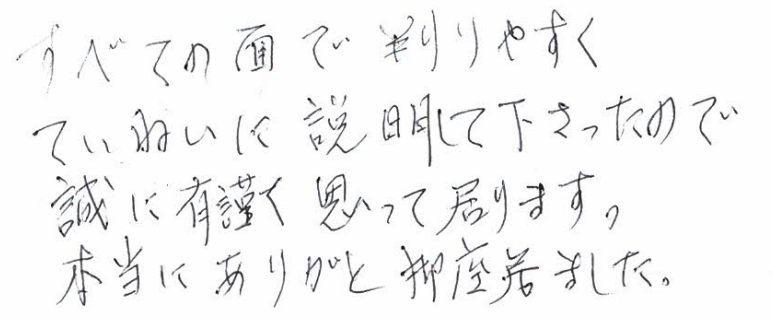 すべての面で判りやすく
ていねいに説明して下さったので
誠に有謹く思って居ります。
本当にありがと御座居ました。